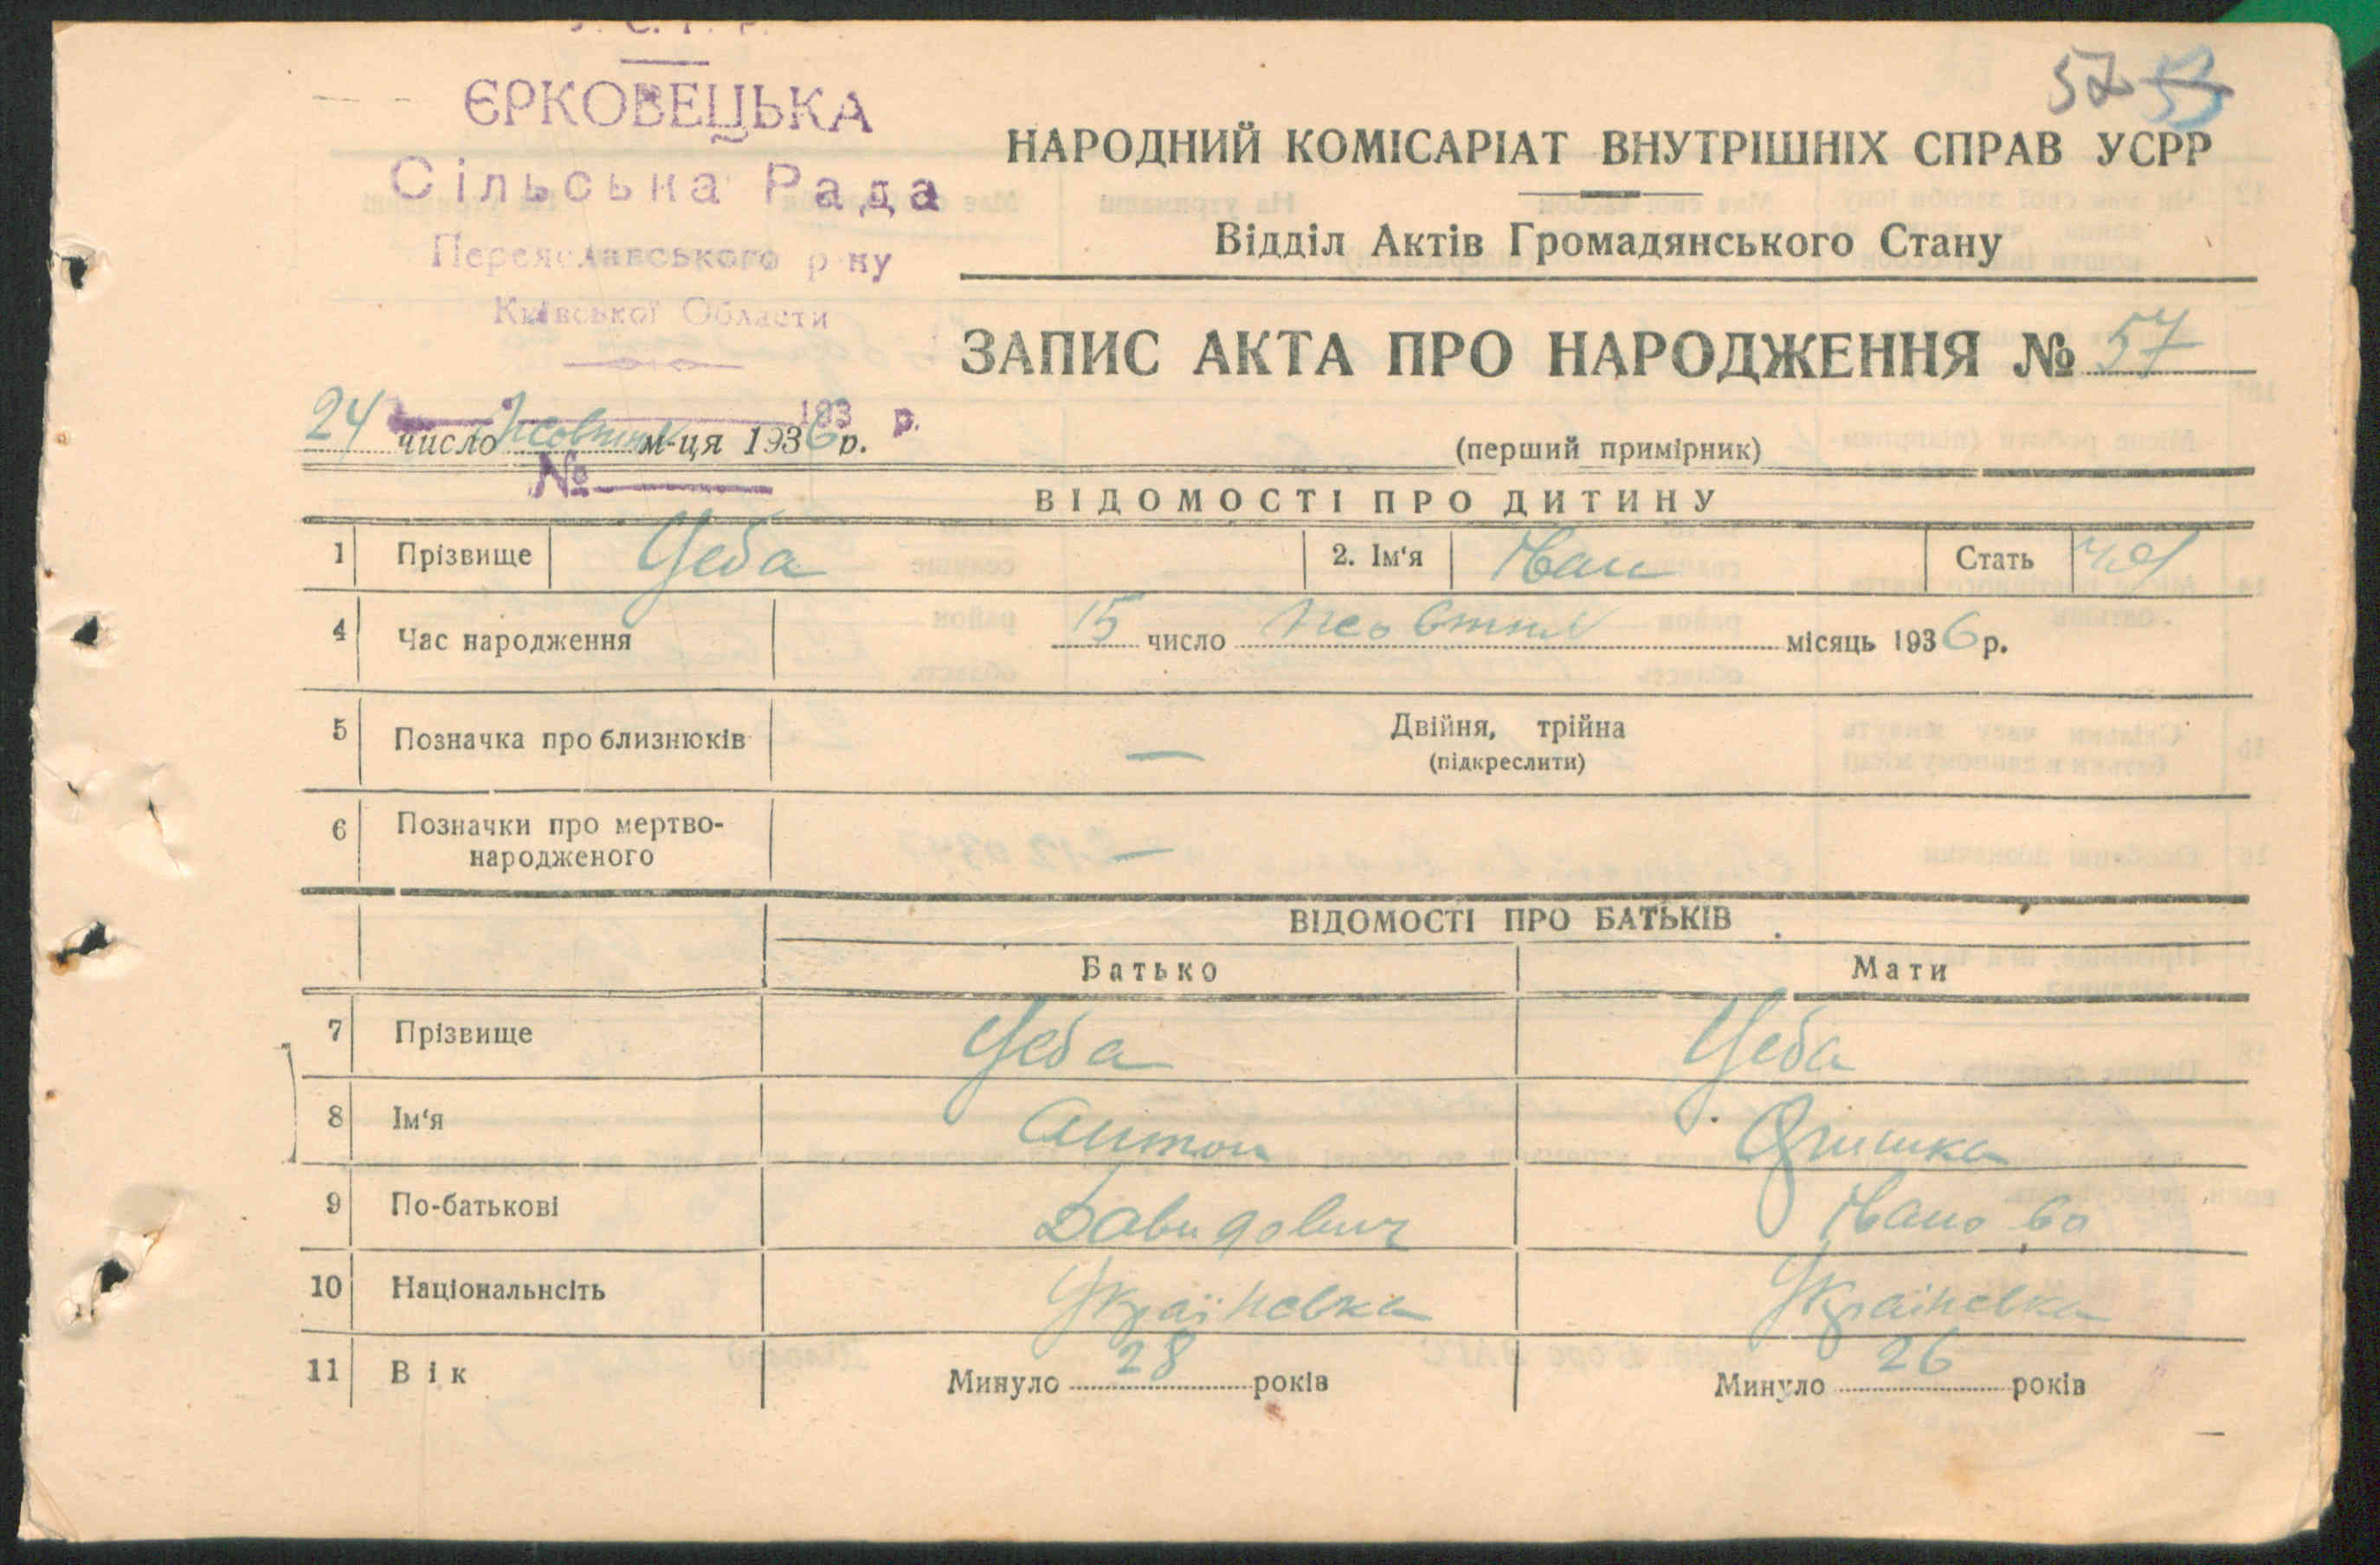 У. С. Р. Р.
ЄРКОВЕЦЬКА
Сільська Рада
Переяславського р-ну
Київської Области
193 р.
№
57 53
НАРОДНИЙ КОМІСАРІАТ ВНУТРІШНІХ СПРАВ УСРР
Відділ Актів Громадянського Стану
ЗАПИС АКТА ПРО НАРОДЖЕННЯ № 57
24 число Жовтня м-ця 1936 р.
(перший примірник)
ВІДОМОСТІ ПРО ДИТИНУ
1 Прізвище Цеба 2. Ім'я Іван Стать чол
4 Час народження 15 число Жовтня місяць 1936 р.
5 Позначка про близнюків — Двійня, трійна
(підкреслити)
6 Позначки про мертво-
народженого —
ВІДОМОСТІ ПРО БАТЬКІВ
Батько Мати
7 Прізвище Цеба Цеба
8 Ім'я Антон Оришка
9 По-батькові Давидович Івано во
10 Національнсіть Українська Українська
11 Вік Минуло 28 років Минуло 26 років